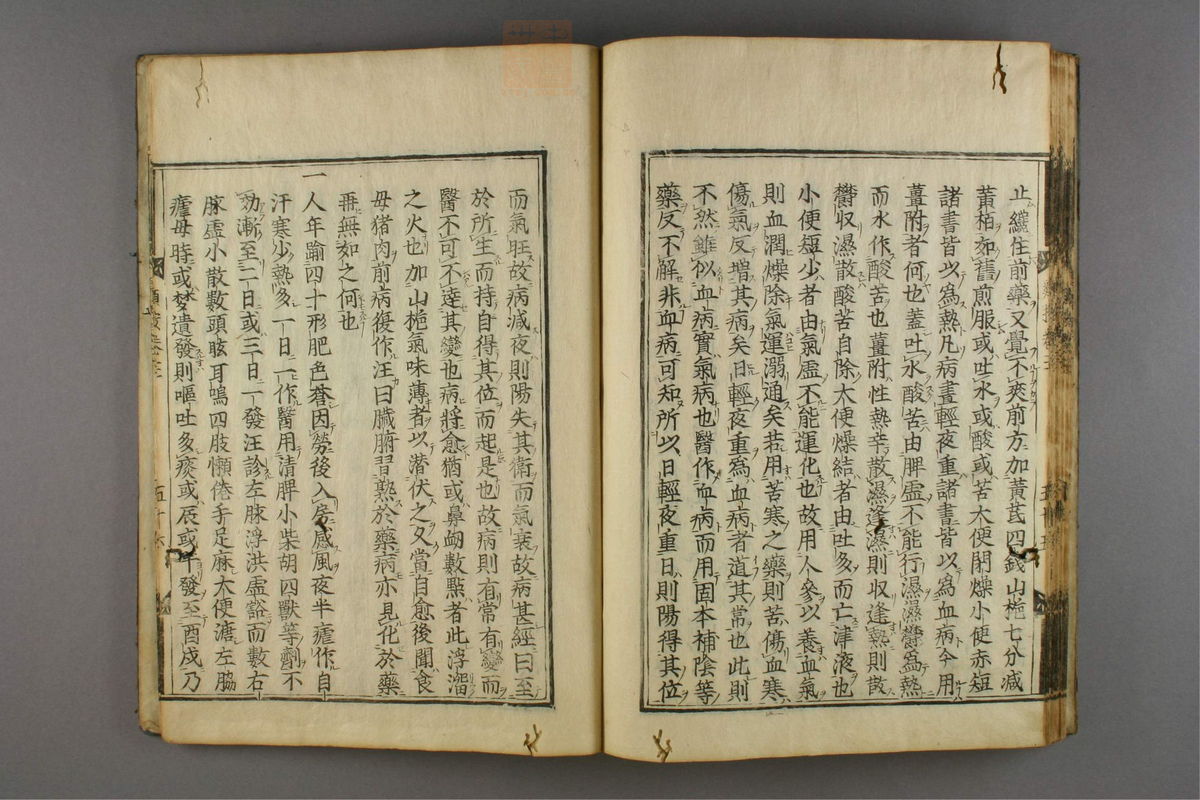 止纔住前藥又覺不爽前方加黃芪四錢山梔七分减
黃栢如舊煎服或吐水或酸或苦大便閉燥小便赤短
諸書皆以爲熱凡病晝輕夜重諸書皆以爲血病今用
薑附者何也蓋吐水酸苦由脾虛不能行濕濕欝爲熱
而水作酸苦也薑附性熱辛散濕逢濕則収逢熱則散
欝収濕散酸苦自除大便燥結者由吐多而亡津液也
小便短少者由氣虛不能運化也故用人參以養血氣
則血潤燥除氣運溺通矣若用苦寒之藥則苦傷血寒
傷氣反増其病矣日輕夜重爲血病者道其常也此則
不然雖似血病實氣病也醫作血病而用固本補陰等
藥反不解非血病可知所以日輕夜重日則陽得其位
而氣旺故病减夜則陽失其衛而氣衰故病甚經曰至
於所生而持自得其位而起是也故病則有常有變而
醫不可不達其變也病將愈猶或鼻衂數點者此浮溜
之火也加山梔氣味薄者以潜伏之久當自愈後聞食
母猪肉前病復作汪曰臓腑習熟於藥病亦見化於藥
再無如之何也
一人年踰四十形肥色蒼因勞後入房感風夜半瘧作自
汗寒少熱多一日一作醫用清脾小柴胡四獸等劑不
効漸至二日或三日一發汪診左脉浮洪虛豁而數右
脉虛小散數頭眩耳鳴四肢懶倦手足麻大便溏左脇
瘧母時或梦遺發則嘔吐多痰或辰或午發至酉戌乃